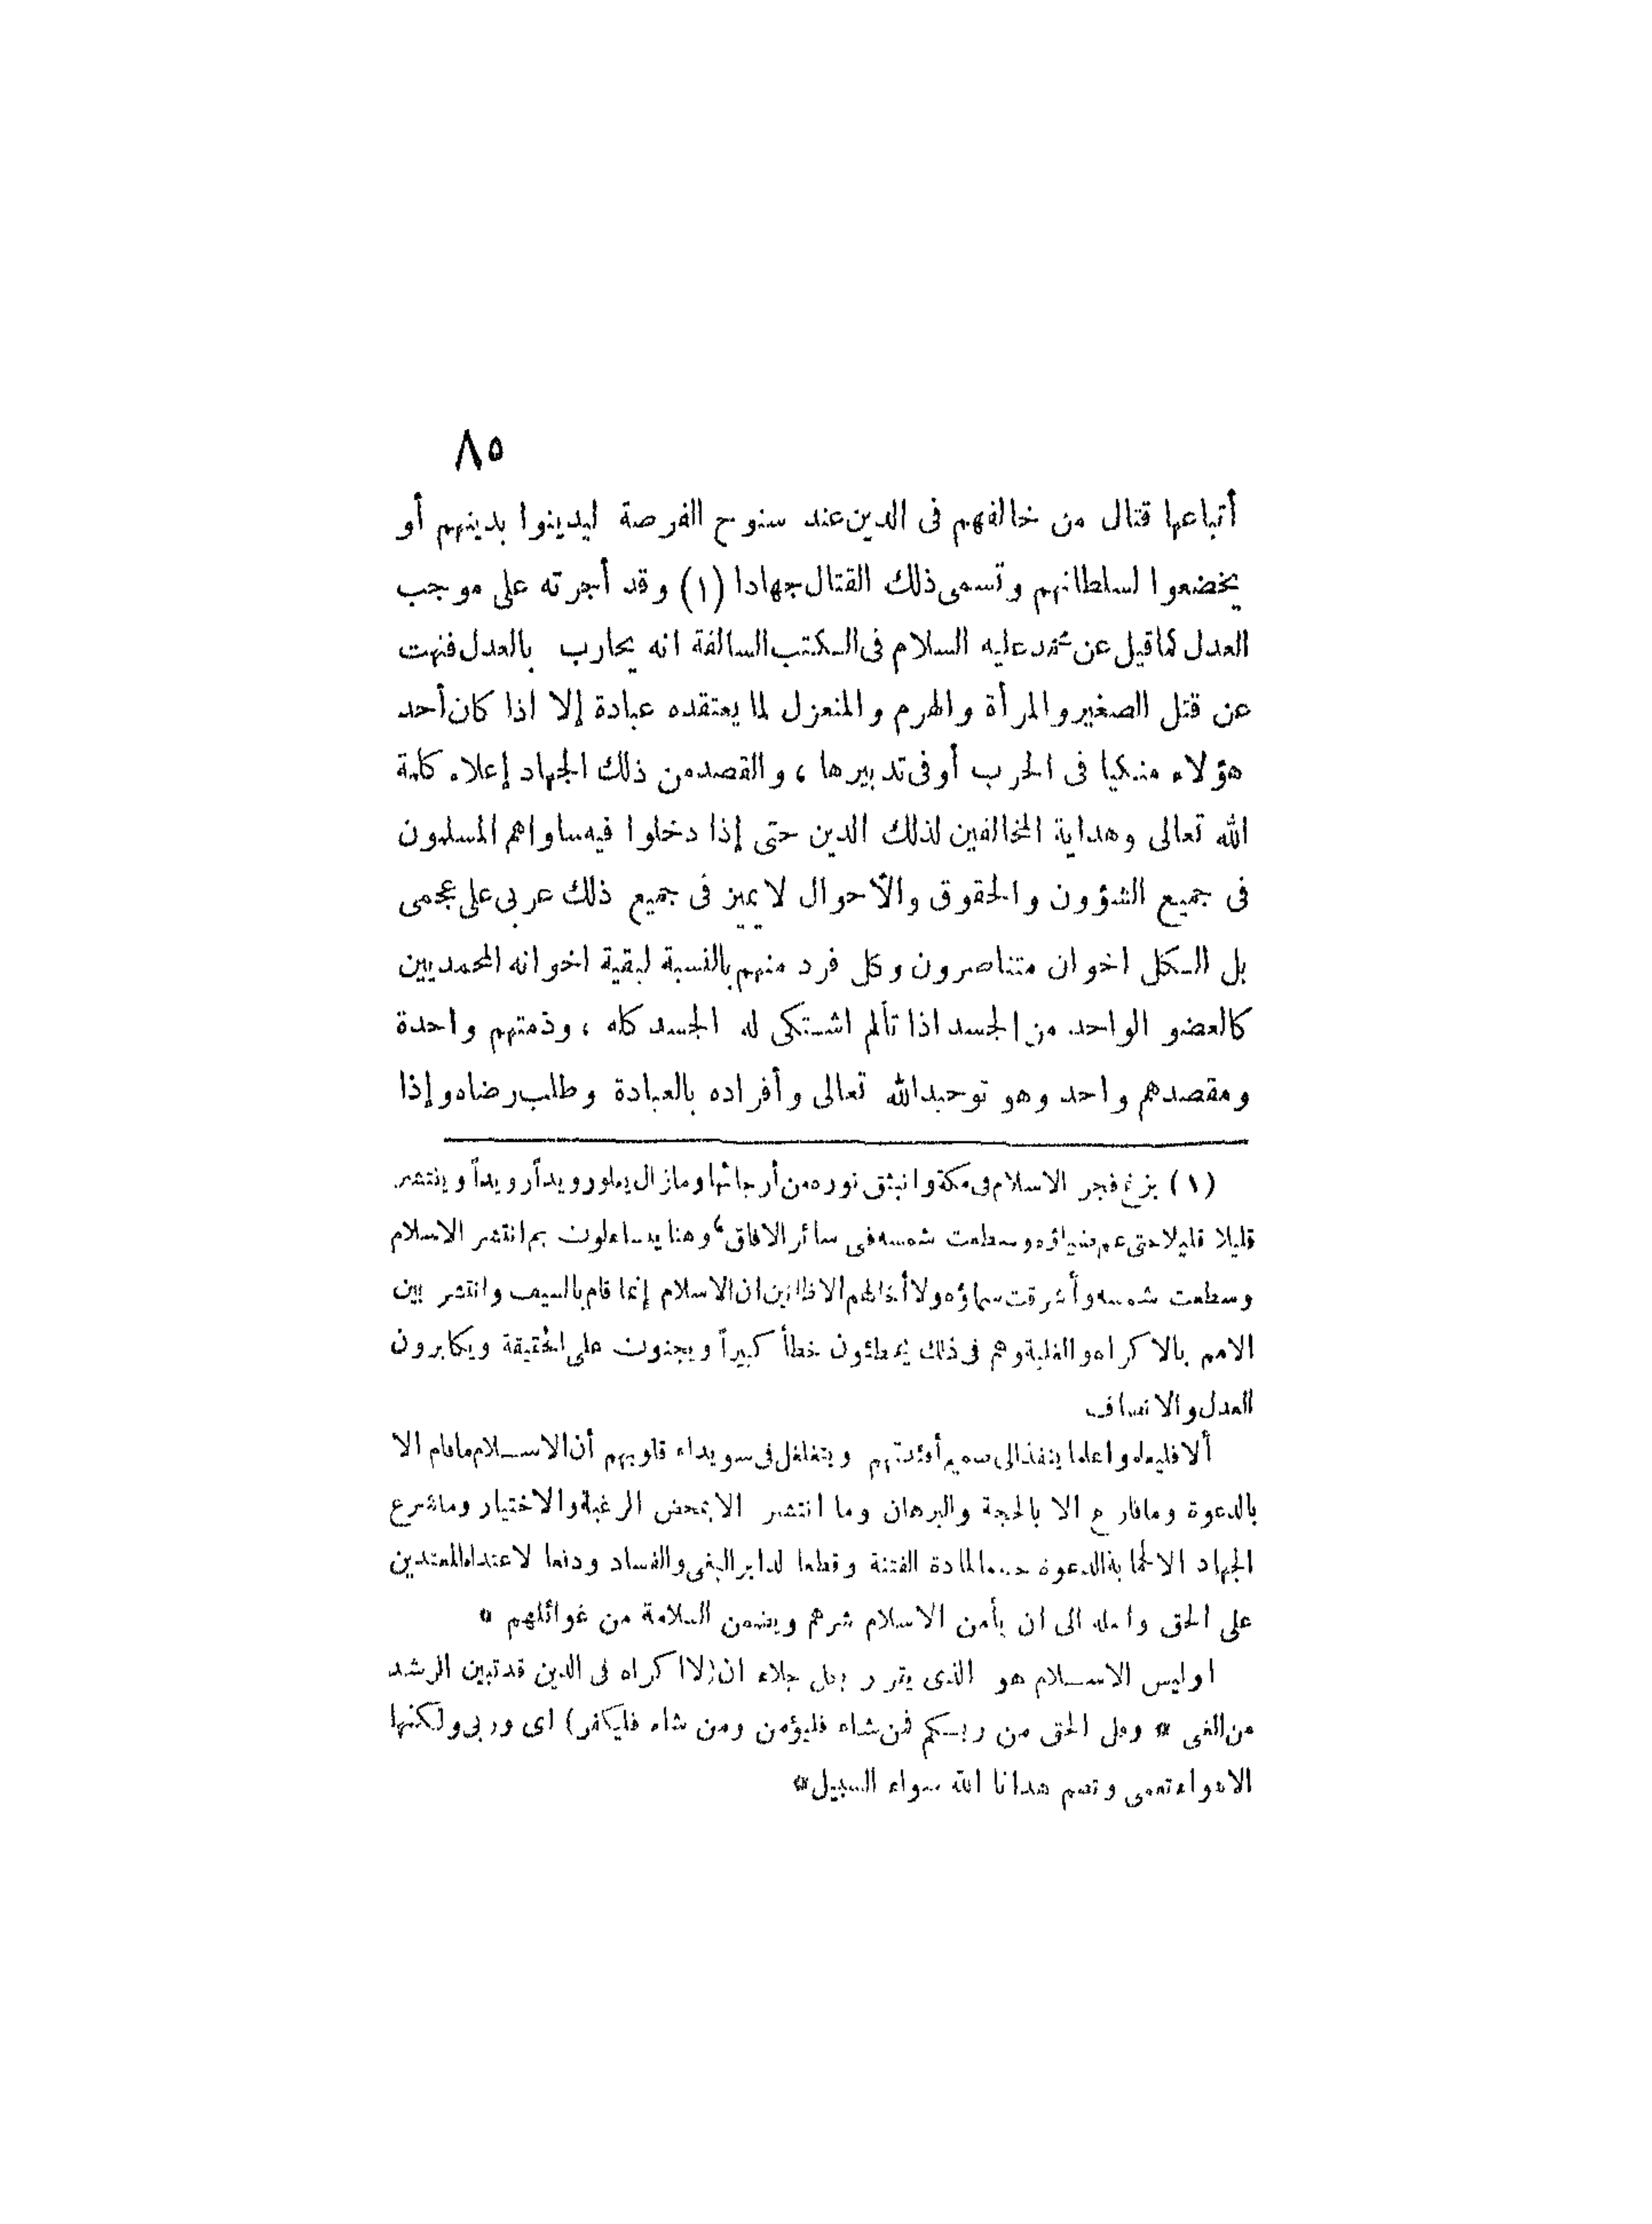 ٨٥
أتباعها قتال من خالفهم فى الدين عند سنوح الفرصة ليدينوا بدينهم أو
يخضعوا لسلطانهم وتسمى ذلك القتال جهادا (١) وقد أجرته على موجب
العدل كما قيل عن محمد عليه السلام فى الكتب السالفة انه يحارب بالعدل فنهت
عن قتل الصغير والمرأة والهرم والمنعزل لما يعتقده عبادة إلا اذا كان أحد
هؤلاء منكيا فى الحرب أو فى تدبيرها ، والقصد من ذلك الجهاد إعلاء كلمة
الله تعالى وهداية المخالفين لذلك الدين حتى إذا دخلوا فيه ساواهم المسلمون
فى جميع الشؤون والحقوق والأحوال لا يميز فى جميع ذلك عربى على عجمى
بل الكل اخوان متناصرون وكل فرد منهم بالنسبة لبقية اخوانه المحمديين
كالعضو الواحد من الجسد اذا تألم اشتكى له الجسد كله ، وذمتهم واحدة
ومقصدهم واحد وهو توحيد الله تعالى وأفراده بالعبادة وطلب رضاه وإذا
(١) بزغ فجر الاسلام فى مكة وانبثق نوره من أرجائها وما زال يعلو رويداً رويداً وينتشر
قليلا قليلا حتى عم ضياؤه وسطعت شمسه فى سائر الافاق ، وهنا يتساءلون بم انتشر الاسلام
وسطعت شمسه وأشرقت سماؤه ولا أخالهم الا ظانين ان الاسلام إنما قام بالسيف وانتشر بين
الامم بالاكراه والغلبة وهم فى ذلك يخطئون خطأ كبيراً ويجنون على الحقيقة ويكابرون
العدل والانصاف
ألا فليعلموا علما ينفذ الى صميم أفئدتهم ويتغلغل فى سويداء قلوبهم أن الاسلام ما قام الا
بالدعوة وما قارع الا بالحجة والبرهان وما انتشر الا بمحض الرغبة والاختيار وما شرع
الجهاد الا لحماية الدعوة حسما لمادة الفتنة وقطعا لدابر البغى والفساد ودفعا لاعتداء المعتدين
على الحق وأهله الى ان يأمن الاسلام شرهم ويضمن السلامة من غوائلهم *
اوليس الاسلام هو الذى يقرر بكل جلاء ان (لا اكراه فى الدين قد تبين الرشد
من الغى * وقل الحق من ربكم فمن شاء فليؤمن ومن شاء فليكفر) اى وربى ولكنها
الاهواء تعمى وتصم هدانا الله سواء السبيل *